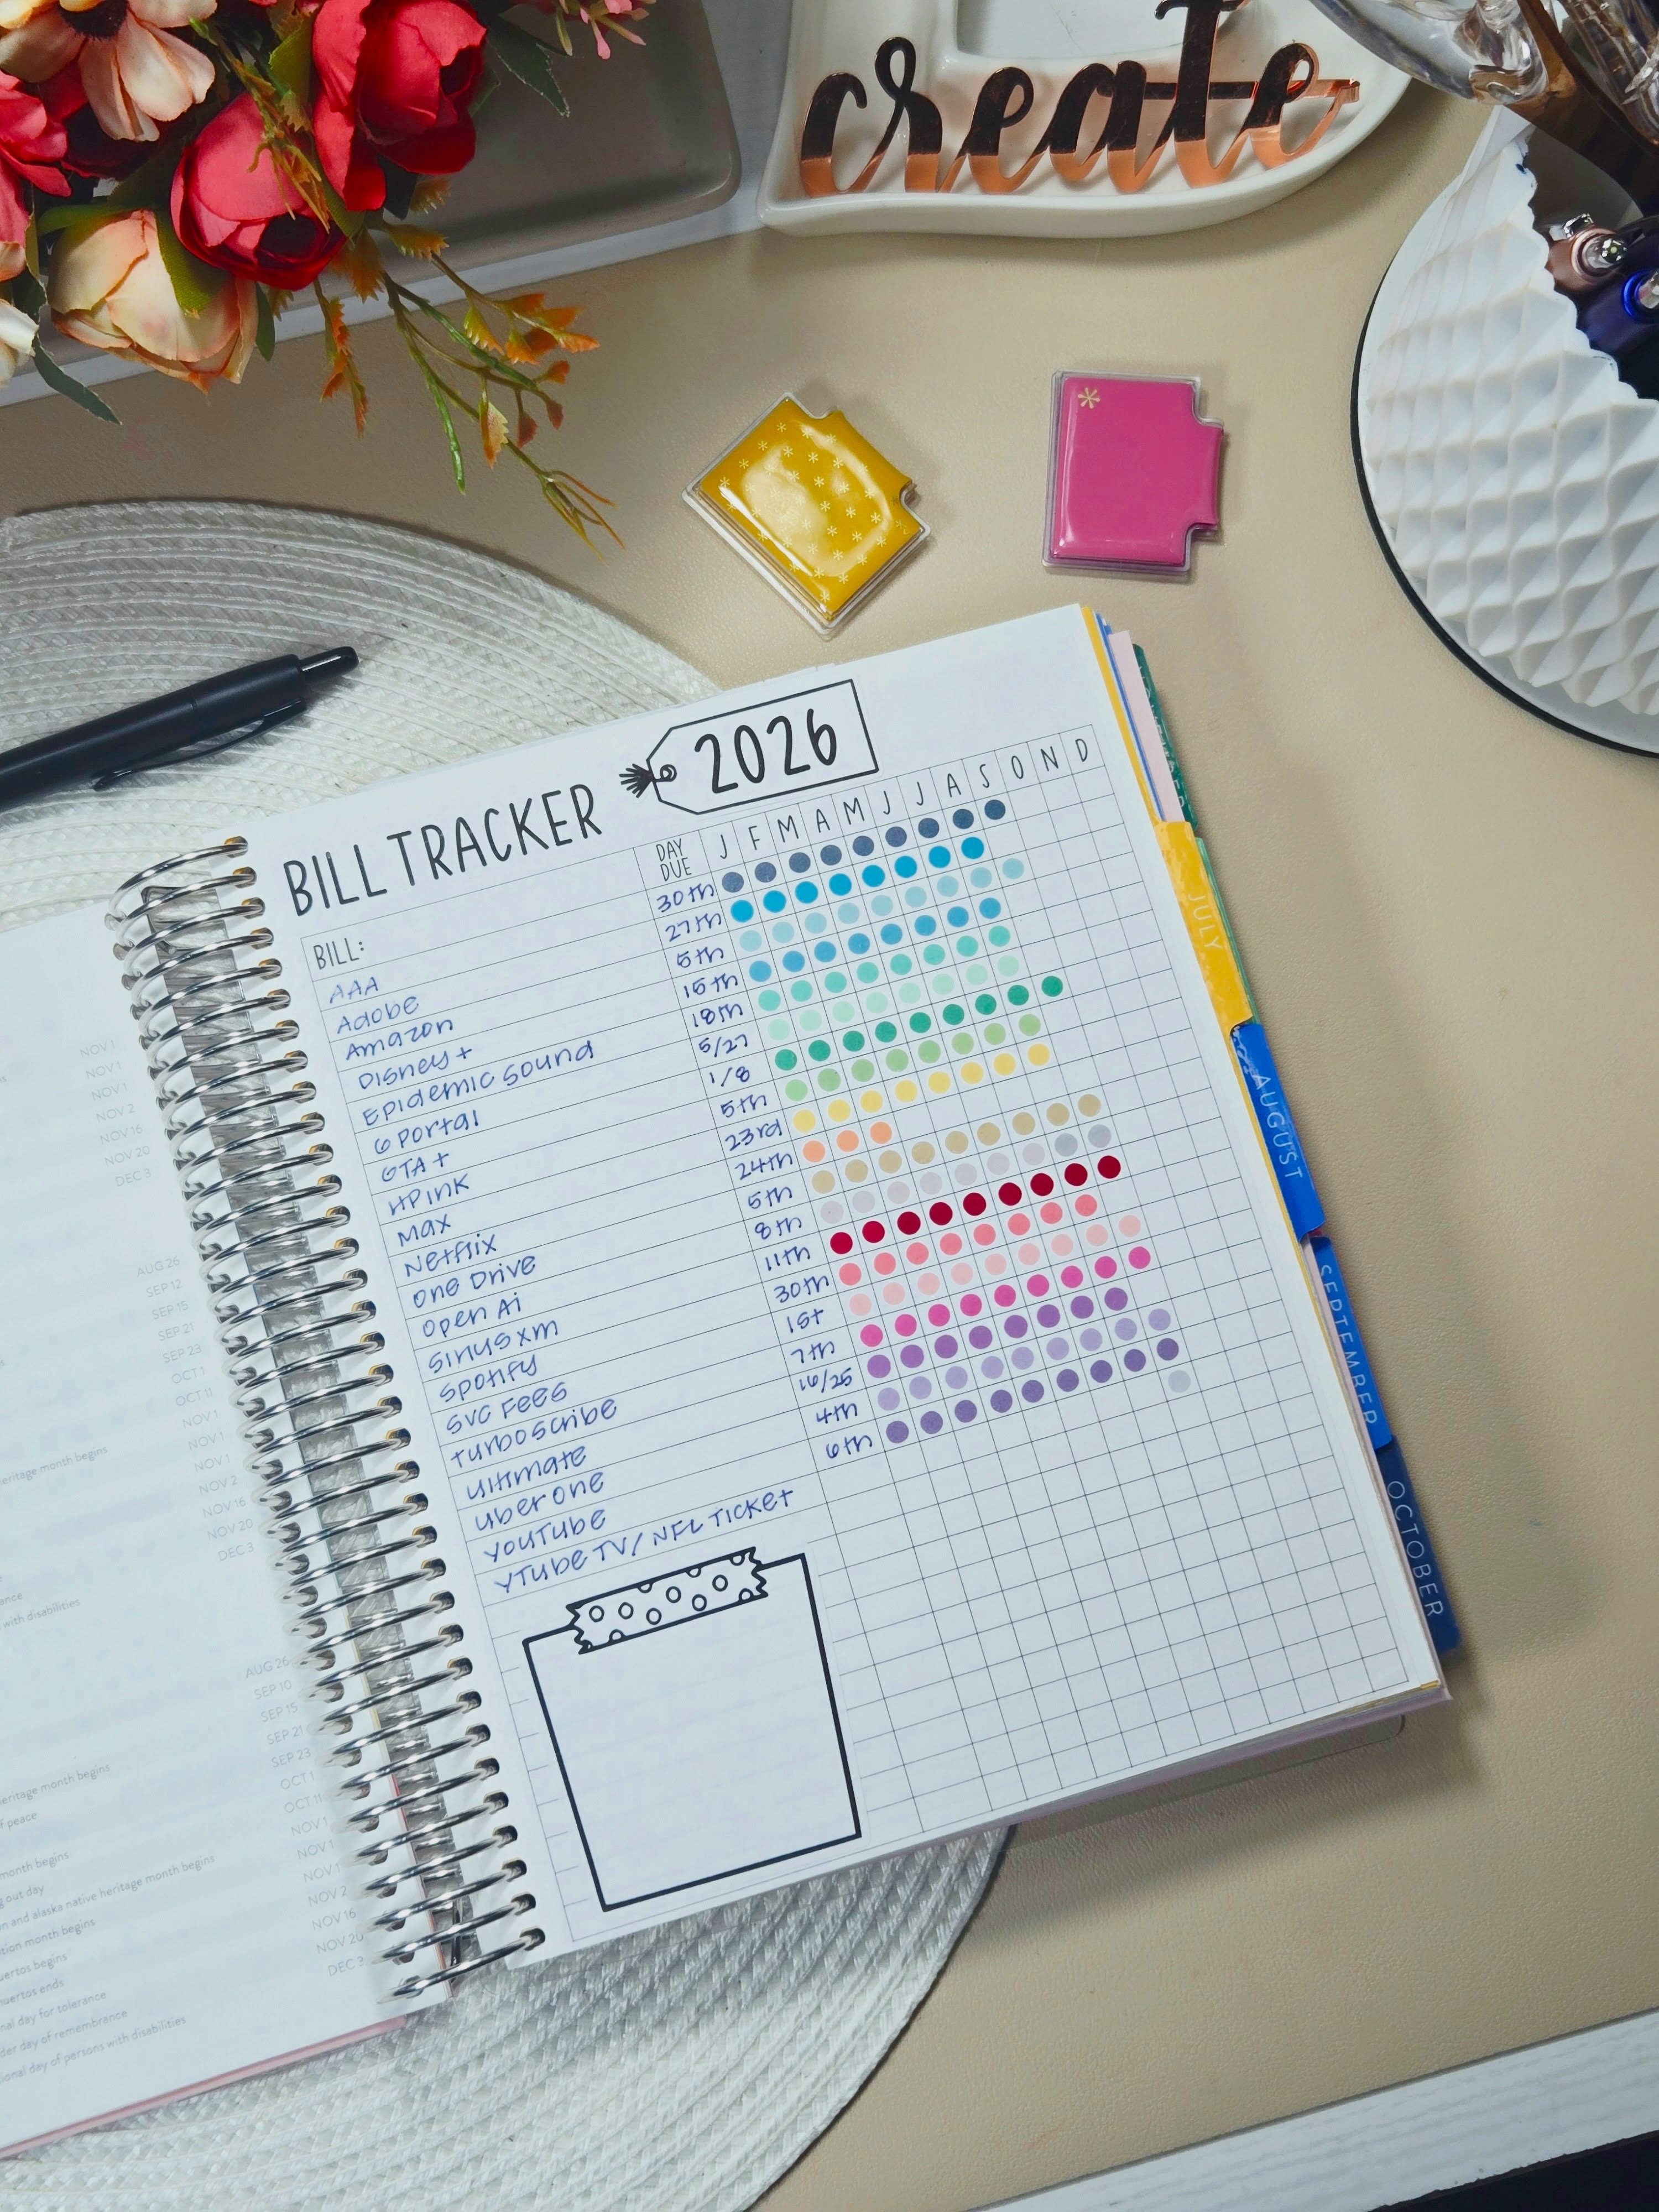 create
NOV 1
NOV 1
NOV 1
NOV 2
NOV 16
NOV 20
DEC 3
AUG 26
SEP 12
SEP 15
SEP 21
SEP 23
OCT 1
OCT 11
heritage month begins NOV 1
NOV 1
NOV 1
NOV 2
NOV 16
NOV 20
with disabilities DEC 3
AUG 26
SEP 10
heritage month begins SEP 15
of peace SEP 21
SEP 23
month begins OCT 1
out day OCT 11
and alaska native heritage month begins NOV 1
month begins NOV 1
begins NOV 1
muertos ends NOV 2
day for tolerance NOV 16
day of remembrance NOV 20
day of persons with disabilities DEC 3
BILL TRACKER 2026
BILL: DAY DUE J F M A M J J A S O N D
AAA 30th
Adobe 27th
Amazon 5th
Disney+ 15th
Epidemic Sound 18th
G Portal 5/27
GTA+ 1/8
HP Ink 5th
Max 23rd
Netflix 24th
One Drive 5th
Open Ai 8th
Sirius xm 11th
Spotify 30th
SVC Fees 1st
Turboscribe 7th
Ultimate 16/25
Uber One 4th
YouTube 6th
YTube TV/ NFL Ticket
JULY
AUGUST
SEPTEMBER
OCTOBER